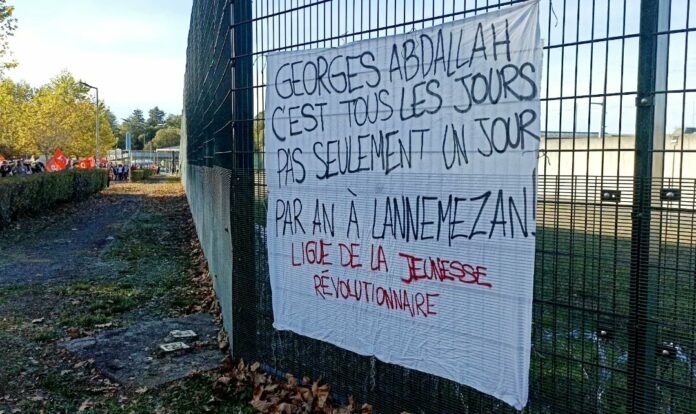 GEORGES ABDALLAH
C'EST TOUS LES JOURS
PAS SEULEMENT UN JOUR
PAR AN À LANNEMEZAN!
LIGUE DE LA JEUNESSE
RÉVOLUTIONNAIRE